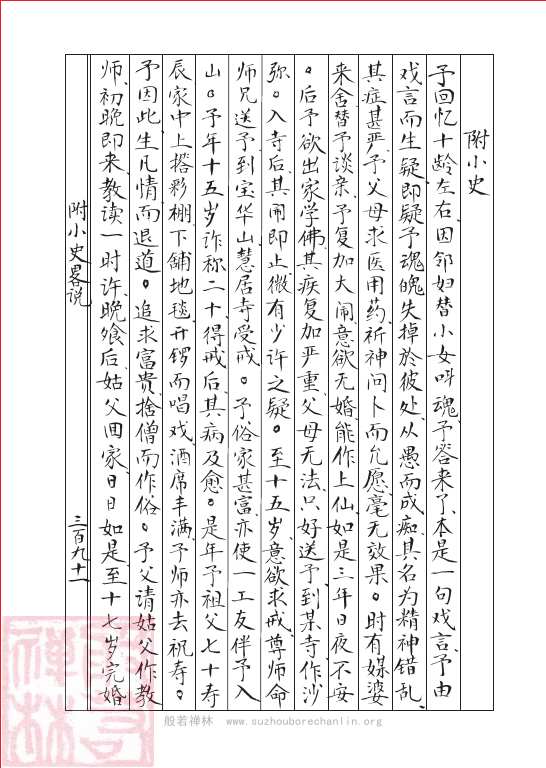 附小史
予回忆十龄左右、因邻妇替小女叫魂、予答来了、本是一句戏言、予由
戏言而生疑、即疑予魂魄失掉於彼处、从愚而成痴、其名为精神错乱、
其症甚严、予父母求医用药、祈神问卜而允愿、毫无效果。时有媒婆
来舍替予谈亲、予复加大闹、意欲无婚、能作上仙、如是三年日夜不安
。后予欲出家学佛、其疾复加严重、父母无法、只好送予到某寺作沙
弥。入寺后、其闹即止、微有少许之疑。至十五岁、意欲求戒、尊师命
师兄送予到宝华山慧居寺受戒。予俗家甚富、亦使一工友伴予入
山。予年十五岁、诈称二十、得戒后、其病及愈。是年予祖父七十寿
辰、家中上搭彩棚、下铺地毯、开锣而唱戏、酒席丰满、予师亦去祝寿。
予因此生凡情而退道。追求富贵、捨僧而作俗。予父请姑父作教
师、初晚即来教读一时许、晚飧后、姑父回家、日日如是、至十七岁完婚
附小史畧说
三百九十一
般若禅林 www.suzhouborechanlin.org